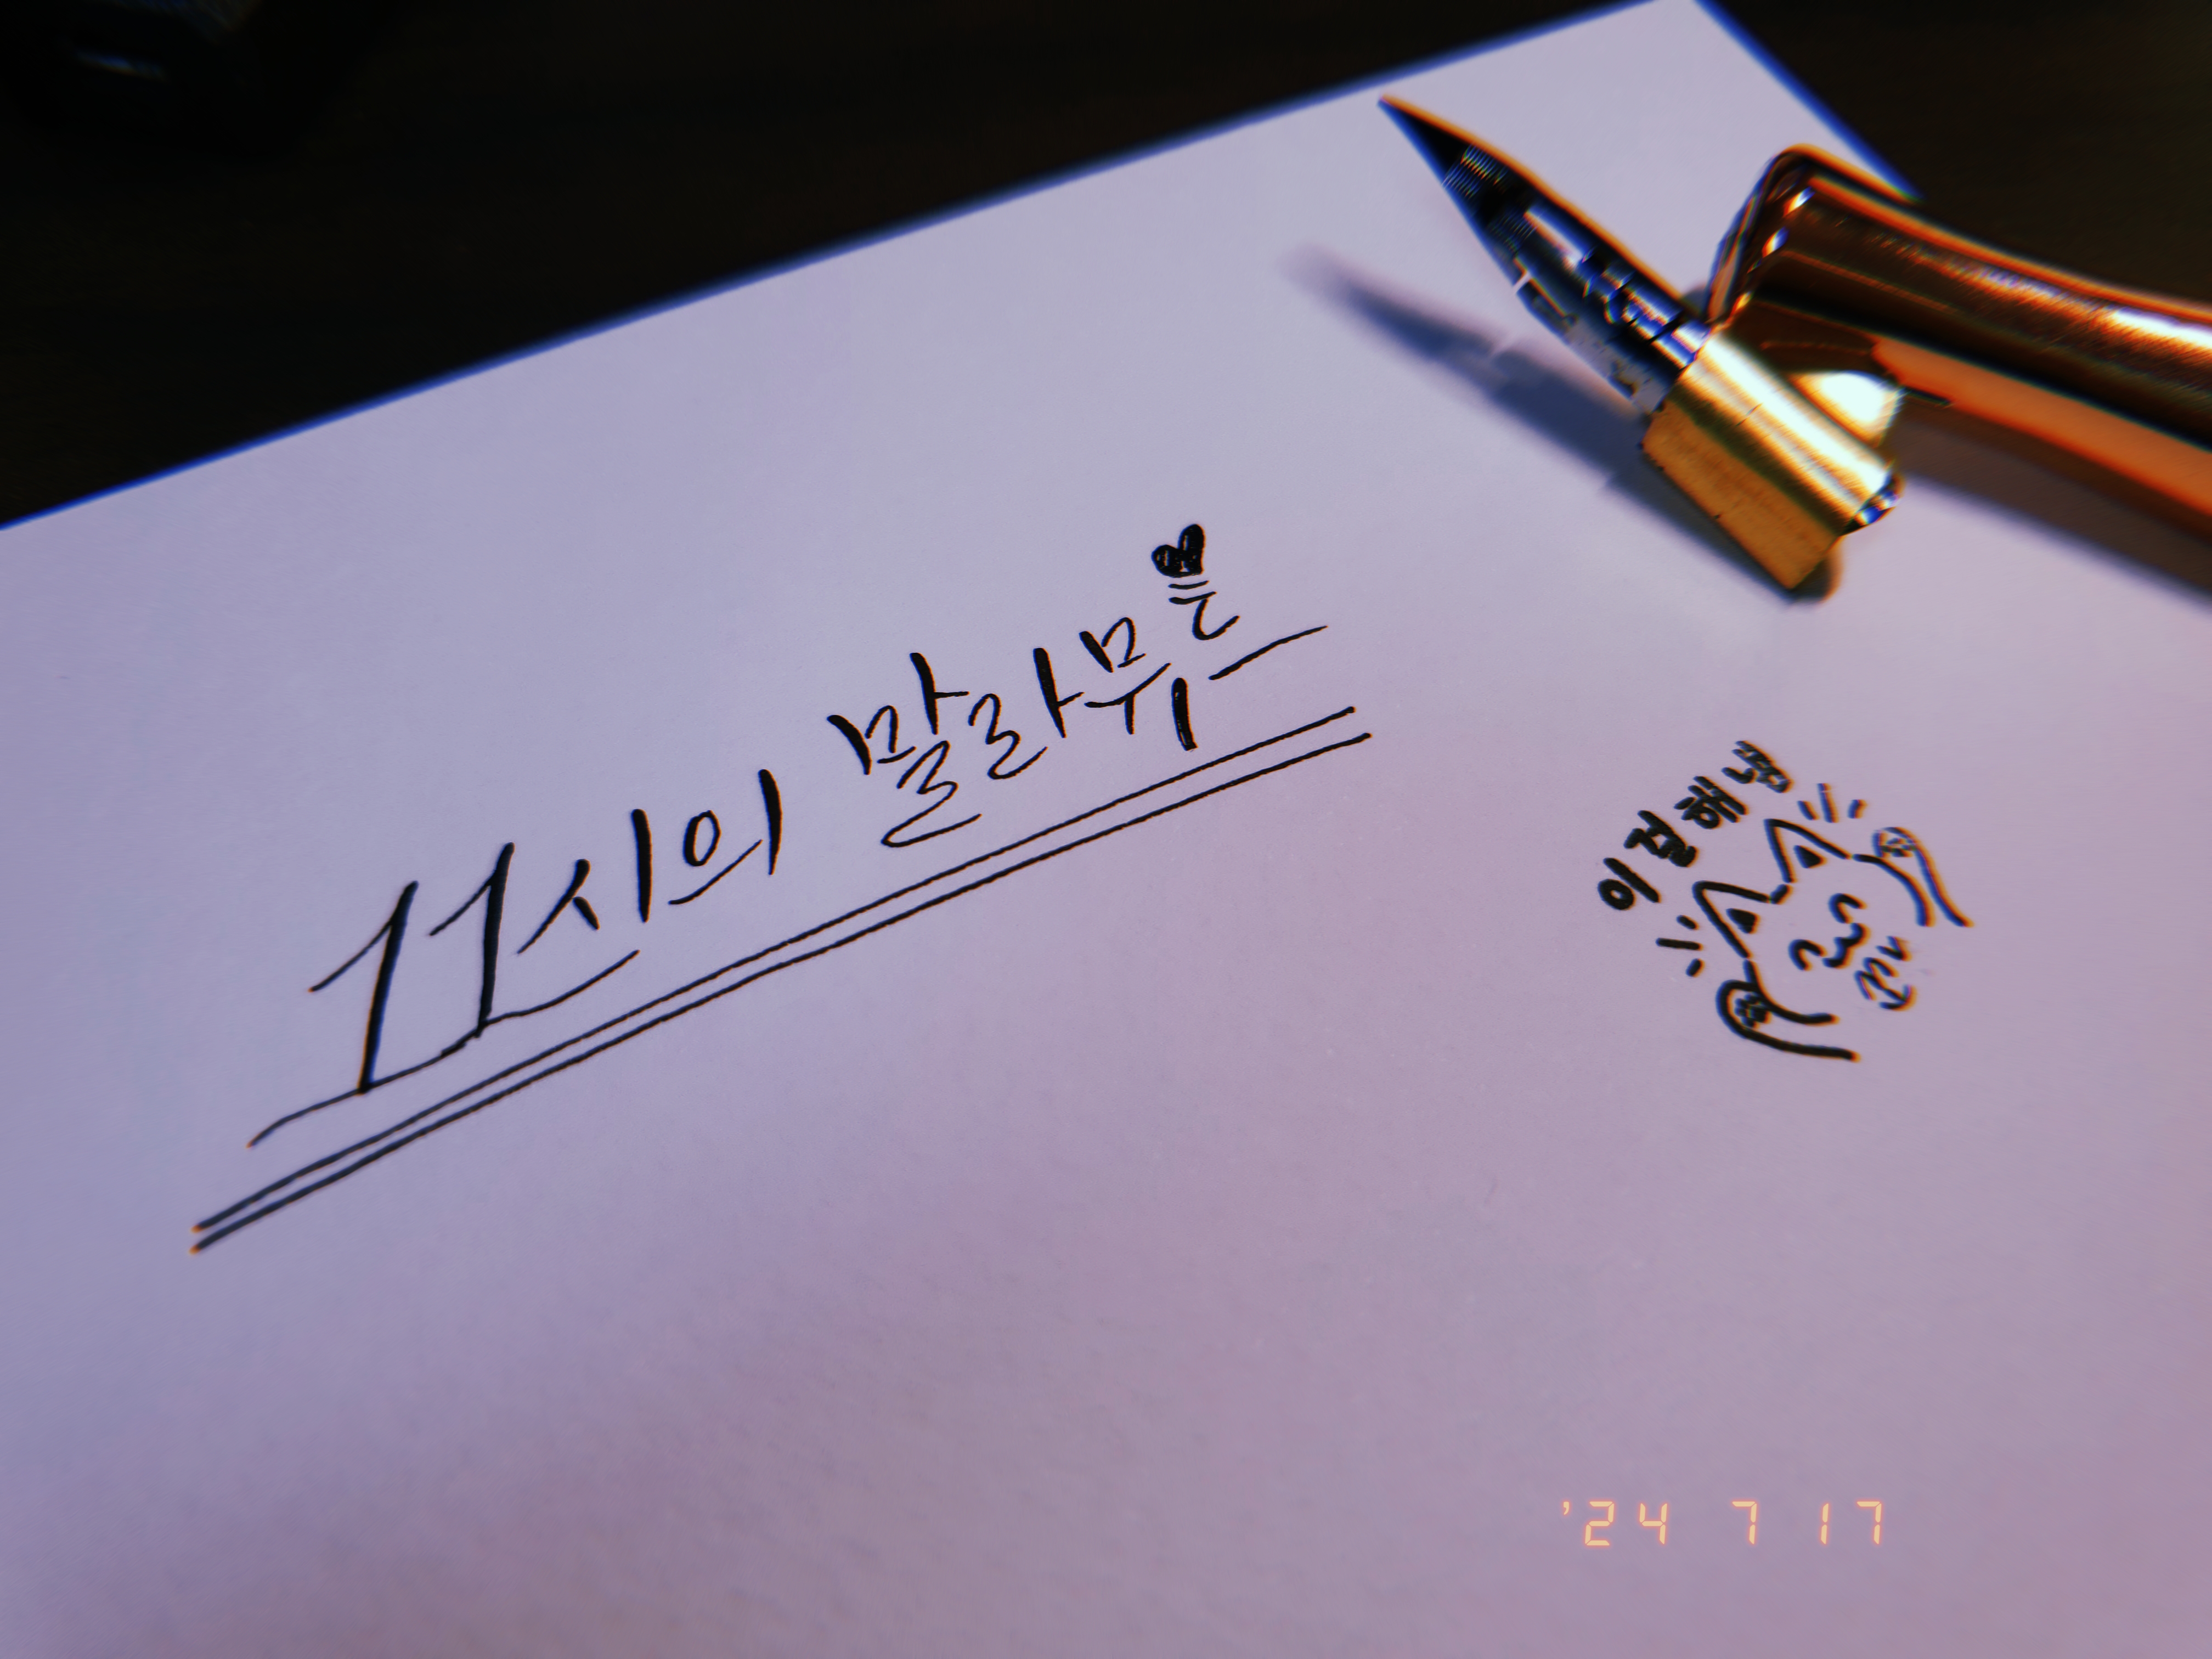 11시의 말라뮤트
이걸해냄
'24 7 17